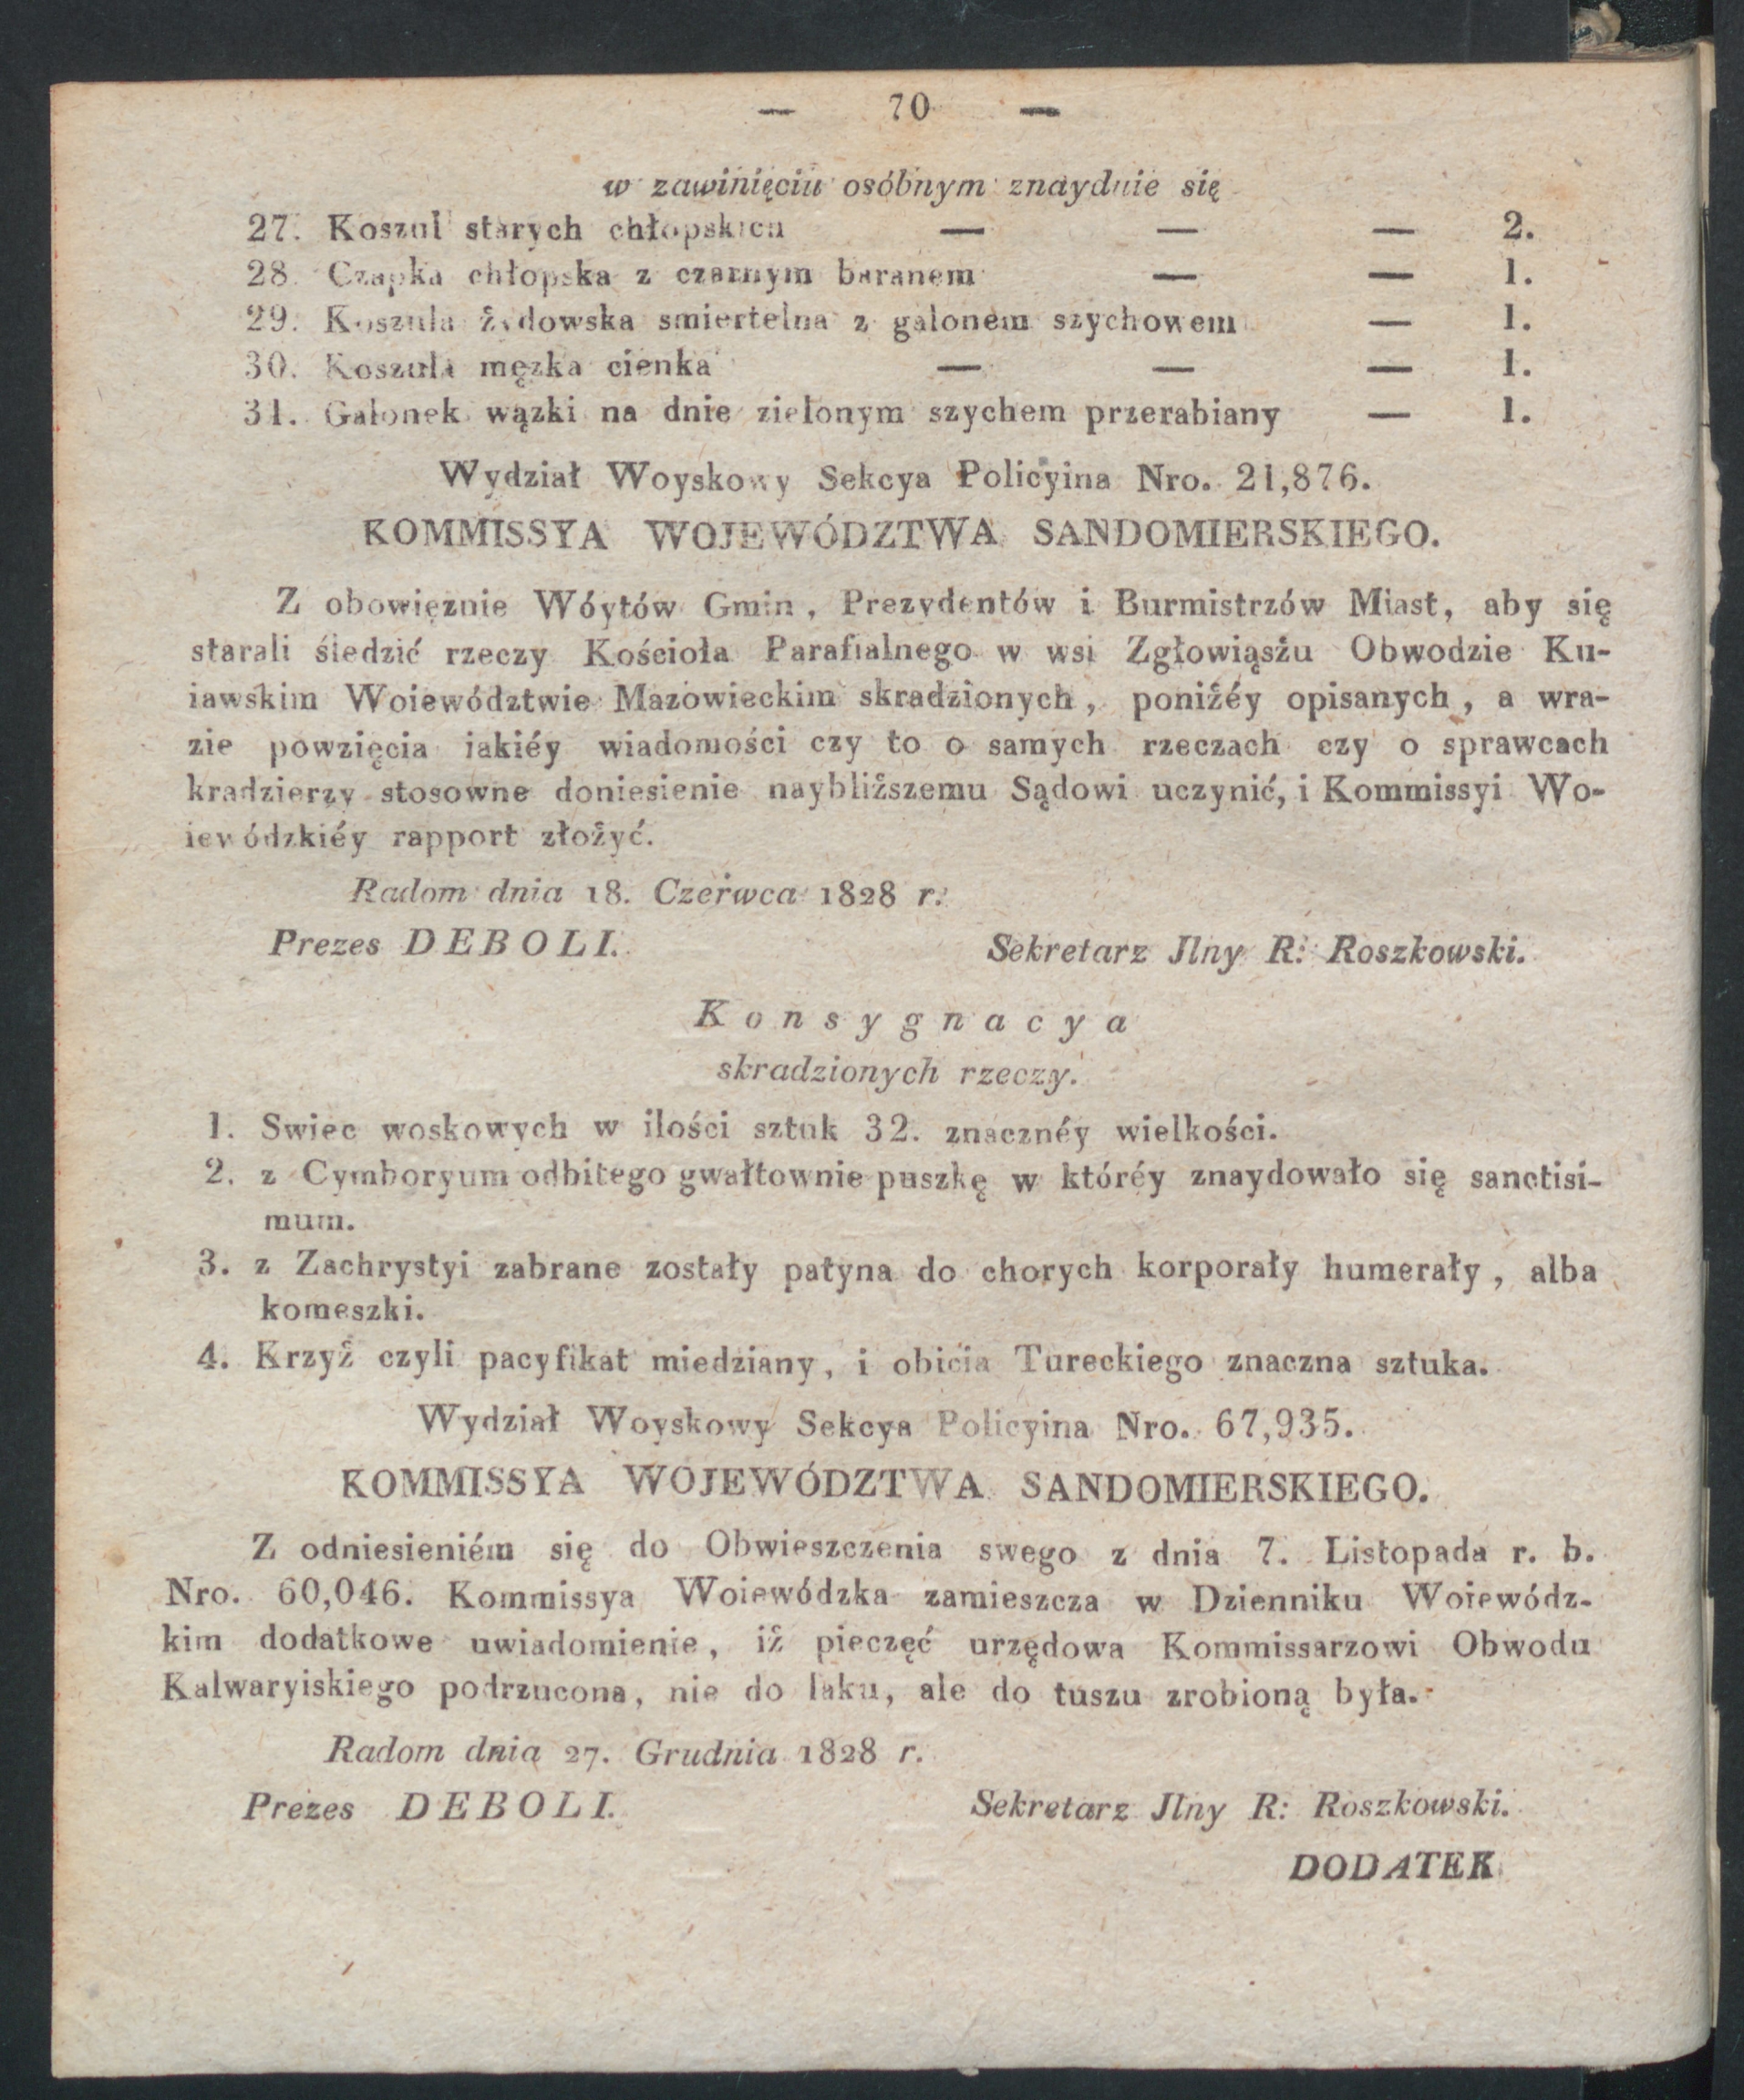 — 70 —
w zawinięciu osóbnym znayduie się
27. Koszul starych chłopskich — — — 2.
28. Czapka chłopska z czarnym baranem — — 1.
29. Koszula żydowska smiertelna z galonem szychowem — 1.
30. Koszula męzka cienka — — — 1.
31. Galonek wązki na dnie zielonym szychem przerabiany — 1.
Wydział Woyskowy Sekcya Policyina Nro. 21,876.
KOMMISSYA WOJEWÓDZTWA SANDOMIERSKIEGO.
Z obowięznie Wóytów Gmin, Prezydentów i Burmistrzów Miast, aby się
starali śledzić rzeczy Kościoła Parafialnego w wsi Zgłowiąsżu Obwodzie Ku-
iawskim Woiewództwie Mazowieckim skradzionych, poniżéy opisanych, a wra-
zie powzięcia iakiéy wiadomości czy to o samych rzeczach czy o sprawcach
kradzierzy stosowne doniesienie naybliższemu Sądowi uczynić, i Kommissyi Wo-
iewódzkiéy rapport złożyć.
Radom dnia 18. Czerwca 1828 r.
Prezes DEBOLI. Sekretarz Jlny R: Roszkowski.
Konsygnacya
skradzionych rzeczy.
1. Swiec woskowych w ilości sztuk 32. znacznéy wielkości.
2. z Cymboryum odbitego gwałtownie puszkę w któréy znaydowało się sanctisi-
mum.
3. z Zachrystyi zabrane zostały patyna do chorych korporały humerały, alba
komeszki.
4. Krzyż czyli pacyfikat miedziany, i obicia Tureckiego znaczna sztuka.
Wydział Woyskowy Sekcya Policyina Nro. 67,935.
KOMMISSYA WOJEWÓDZTWA SANDOMIERSKIEGO.
Z odniesieniém się do Obwieszczenia swego z dnia 7. Listopada r. b.
Nro. 60,046. Kommissya Woiewódzka zamieszcza w Dzienniku Woiewódz-
kim dodatkowe uwiadomienie, iż pieczęć urzędowa Kommissarzowi Obwodu
Kalwaryiskiego podrzucona, nie do laku, ale do tuszu zrobioną była.
Radom dnia 27. Grudnia 1828 r.
Prezes DEBOLI. Sekretarz Jlny R: Roszkowski.
DODATEK